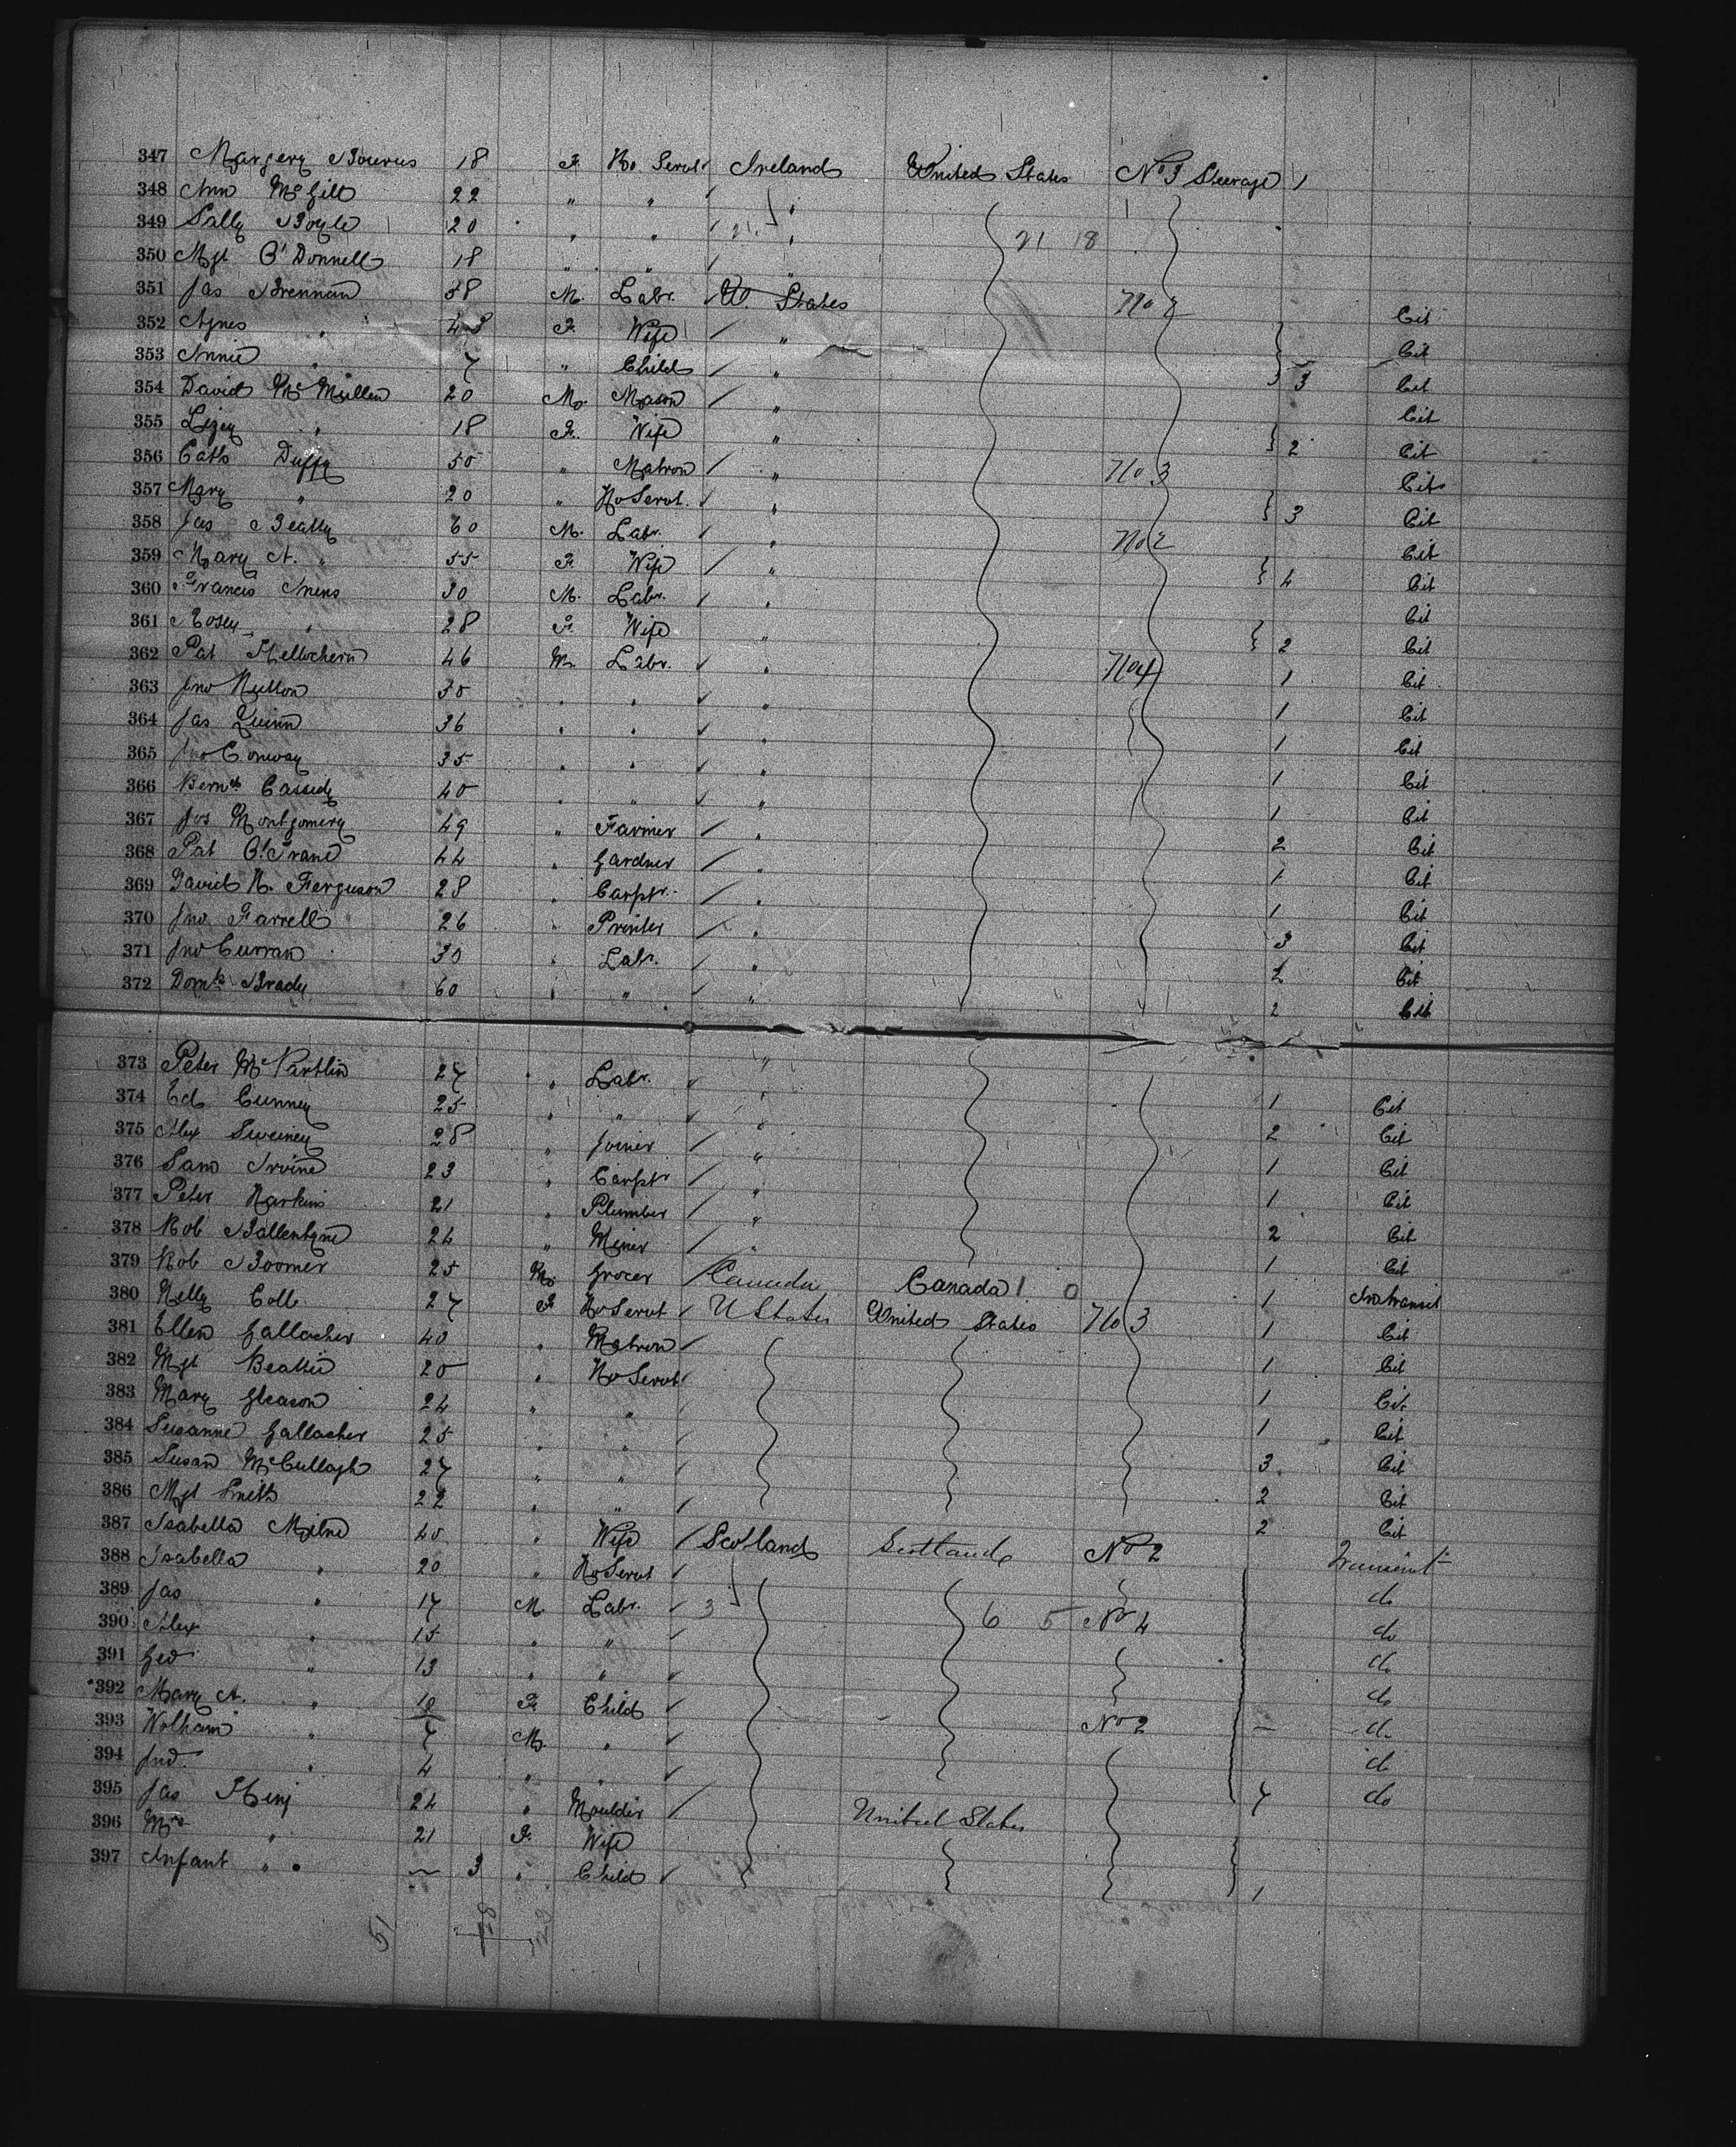 347 Margery Bowens 18 F. Ho Servt Ireland United States No 3 Steerage 1
348 Ann McGill 22 " " "
349 Sally Boyle 20 " " " 21 18
350 Mgt O'Donnell 18 " " "
351 Jas Brennan 58 M. Labr. U. States No 2 Cit
352 Agnes " 43 F. Wife " Cit
353 Annie " 7 " Child " 3 Cit
354 David McMullen 20 M. Mason " Cit
355 Lizzy " 18 F. Wife " 2 Cit
356 Cath Duffy 50 " Matron " No 3 Cit
357 Mary " 20 " Ho Servt. " 3 Cit
358 Jas Beatty 60 M. Labr. " No 2 Cit
359 Mary A. " 55 F. Wife " 4 Cit
360 Francis 30 M. Labr. " Cit
361 Rosey " 28 F. Wife " 2 Cit
362 Pat 46 M. Labr. " No 4 1 Cit
363 Jno Hutton 30 " " " 1 Cit
364 Jas Quinn 36 " " " 1 Cit
365 Jno Conway 35 " " " 1 Cit
366 Bernd Cassidy 40 " " " 1 Cit
367 Jos Montgomery 49 " Farmer " 2 Cit
368 Pat 44 " Gardner " 1 Cit
369 David H. Ferguson 28 " Carptr. " 1 Cit
370 Jno Farrell 26 " Printer " 3 Cit
371 Jno Curran 30 " Labr. " 2 Cit
372 Domk Brady 60 " " " 2 Cit
373 Peter McPartlin 27 " Labr. " 1 Cit
374 Ed Cunney 25 " " " 2 Cit
375 Alex Sweeney 28 " Joiner " 1 Cit
376 Sam Irvine 23 " Carptr " 1 Cit
377 Peter Harkins 21 " Plumber " 2 Cit
378 Rob Ballentyne 24 " Miner " 1 Cit
379 Rob Boomer 25 M. Grocer Canada Canada 1 0 1 In transit
380 Nelly Coll 27 F. Ho Servt U States United States No 3 1 Cit
381 Ellen Gallacher 40 " Matron 1 Cit
382 Mgt Beattie 20 " Ho Servt 1 Cit
383 Mary Gleason 24 " " 1 Cit
384 Susanne Gallacher 25 " " 3 Cit
385 Susan McCullagh 27 " " 2 Cit
386 Mgt Smith 22 " " 2 Cit
387 Isabella Milne 40 " Wife Scotland Scotland No 2 Transient
388 Isabella " 20 " Ho Servt do
389 Jas " 17 M. Labr. 3 6 5 No 4 do
390 Alex " 15 " " do
391 Geo " 13 " " do
392 Mary A. " 10 F. Child No 2 do
393 William " 7 M. " do
394 Jno. " 4 " " 7 do
395 Jas King 24 " Moulder United States
396 Mrs " 21 F. Wife
397 Infant " 3 " Child 1
51 28 23